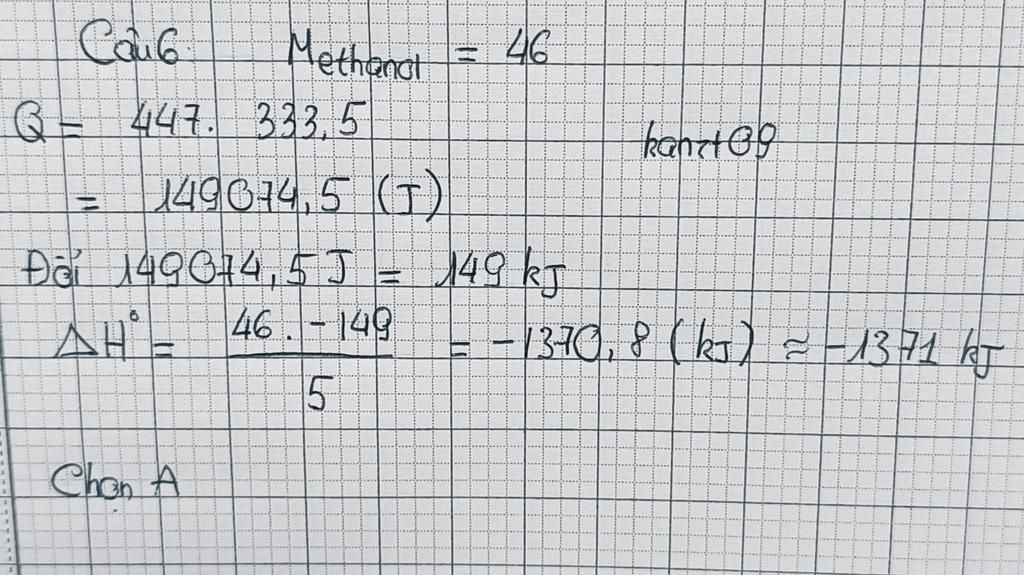 Câu 6. Methanol = 46
Q = 447. 333,5
kanzt09
= 149074,5 (J)
Đổi 149074,5 J = 149 kJ
ΔH° = 46 . -149 / 5 = -1370,8 (kJ) ≈ -1371 kJ
Chọn A